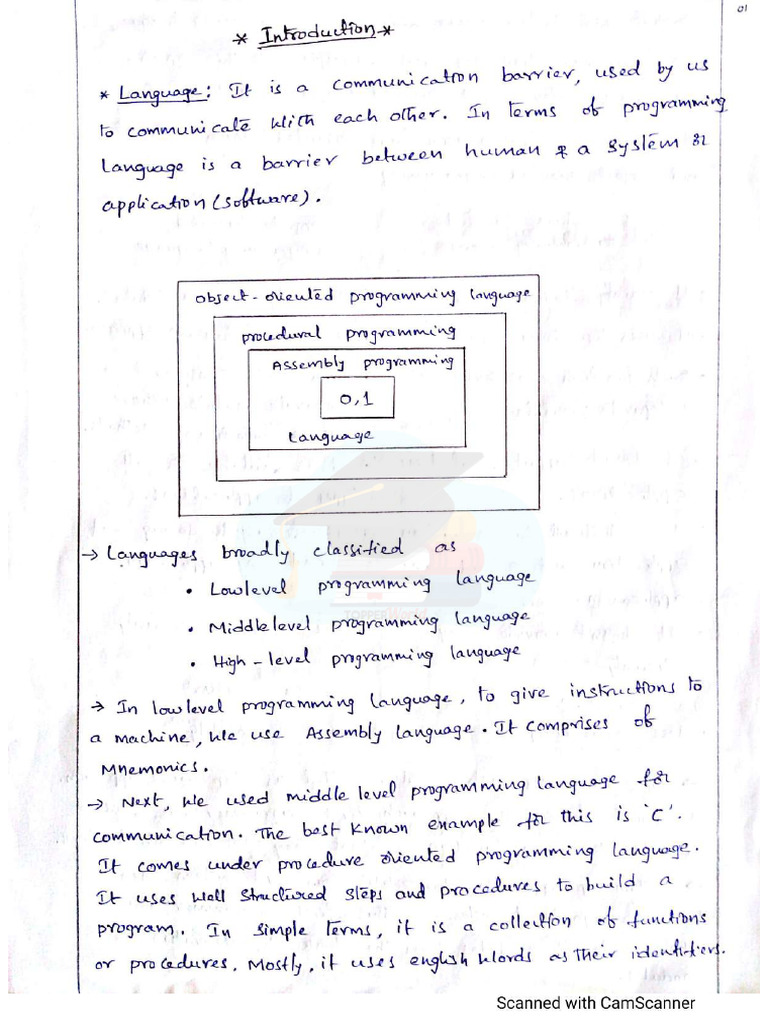 01
* Introduction *
* Language: It is a communication barrier, used by us
to communicate with each other. In terms of programming
language is a barrier between human & a system or
application (software).
object-oriented programming language
procedural programming
Assembly programming
0,1
language
→ Languages broadly classified as
• Lowlevel programming language
• Middlelevel programming language
• High-level programming language
TOPPERWorld
→ In lowlevel programming language, to give instructions to
a machine, we use Assembly language. It comprises of
Mnemonics.
→ Next, we used middle level programming language for
communication. The best known example for this is 'C'.
It comes under procedure oriented programming language.
It uses well structured steps and procedures to build a
program. In simple terms, it is a collection of functions
or procedures. Mostly, it uses english words as their identifiers.
Scanned with CamScanner